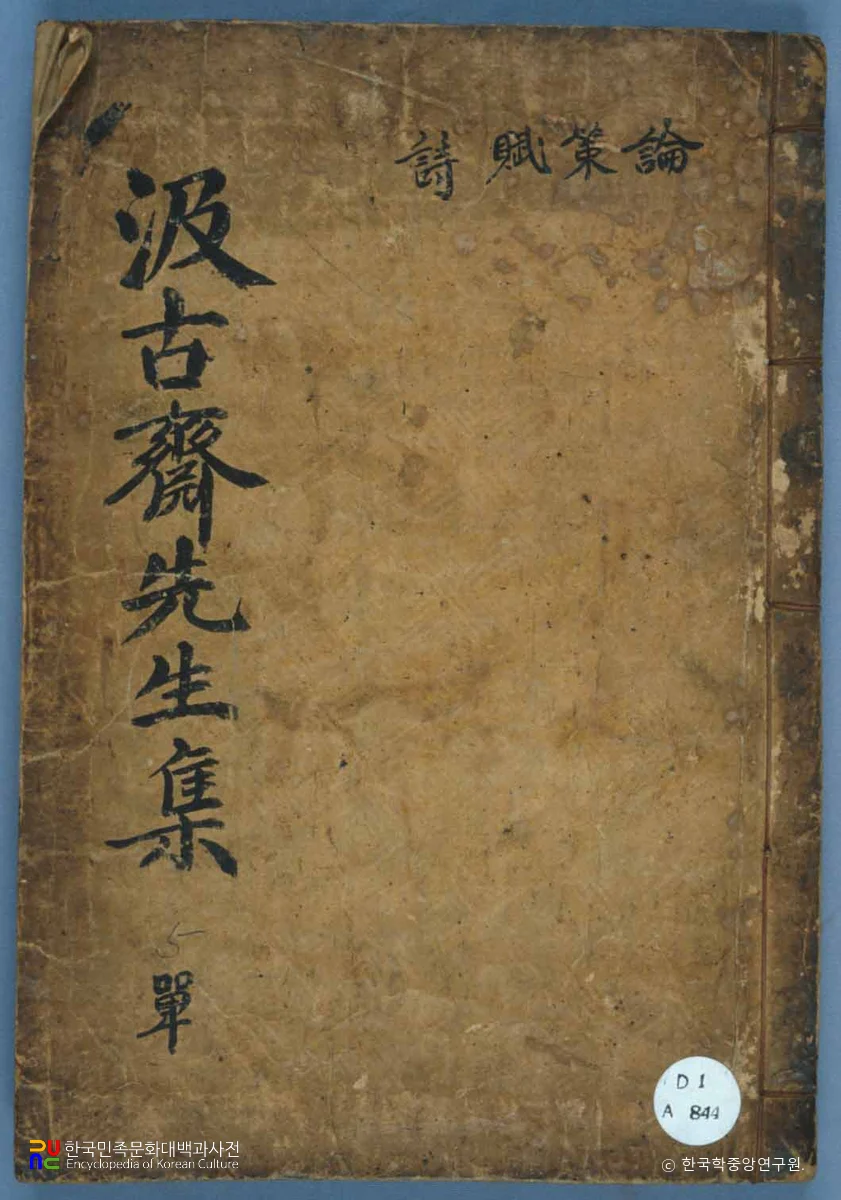 論策賦詩
汲古齋先生集
5
單
D 1
A 844
한국민족문화대백과사전
Encyclopedia of Korean Culture
© 한국학중앙연구원.